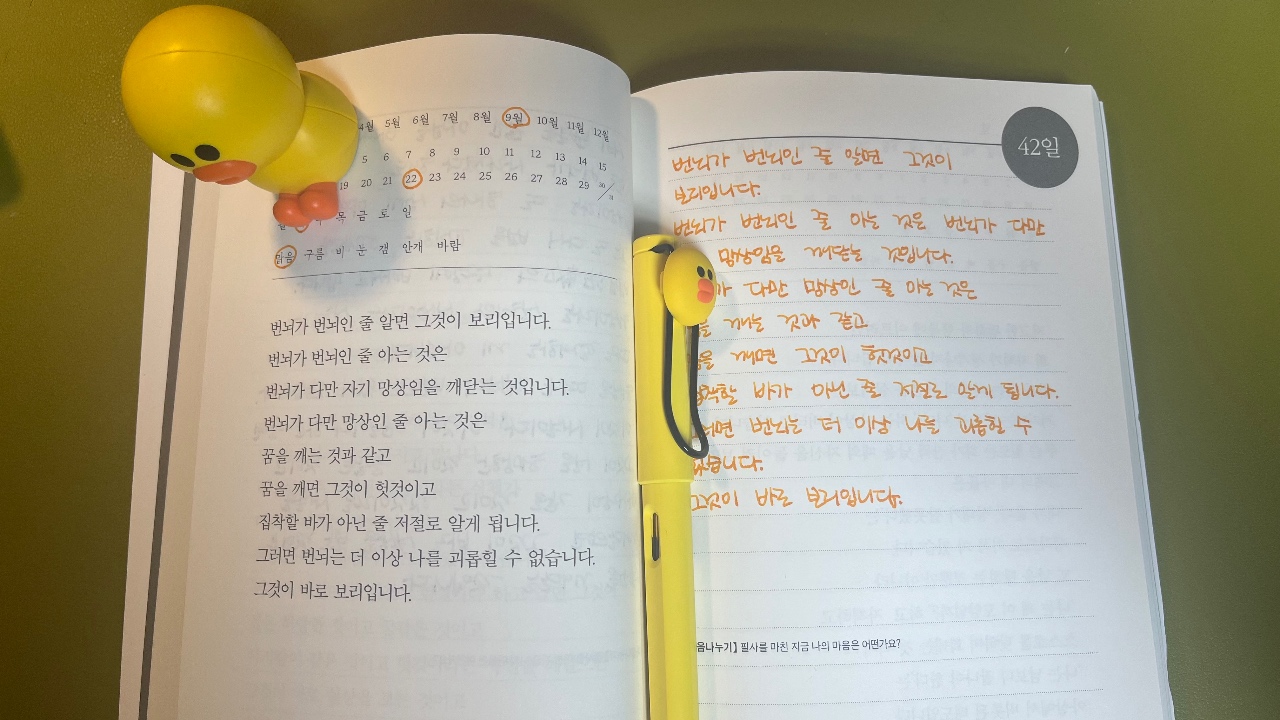 4월 5월 6월 7월 8월 9월 10월 11월 12월
5 6 7 8 9 10 11 12 13 14 15
19 20 21 22 23 24 25 26 27 28 29 30/31
목 금 토 일
맑음 구름 비 눈 갬 안개 바람
번뇌가 번뇌인 줄 알면 그것이 보리입니다.
번뇌가 번뇌인 줄 아는 것은
번뇌가 다만 자기 망상임을 깨닫는 것입니다.
번뇌가 다만 망상인 줄 아는 것은
꿈을 깨는 것과 같고
꿈을 깨면 그것이 헛것이고
집착할 바가 아닌 줄 저절로 알게 됩니다.
그러면 번뇌는 더 이상 나를 괴롭힐 수 없습니다.
그것이 바로 보리입니다.
42일
번뇌가 번뇌인 줄 알면 그것이
보리입니다.
번뇌가 번뇌인 줄 아는 것은 번뇌가 다만
망상임을 깨닫는 것입니다.
다만 망상인 줄 아는 것은
깨는 것과 같고
깨면 그것이 헛것이고
바가 아닌 줄 저절로 알게 됩니다.
번뇌는 더 이상 나를 괴롭힐 수
없습니다.
그것이 바로 보리입니다.
음나누기】 필사를 마친 지금 나의 마음은 어떤가요?